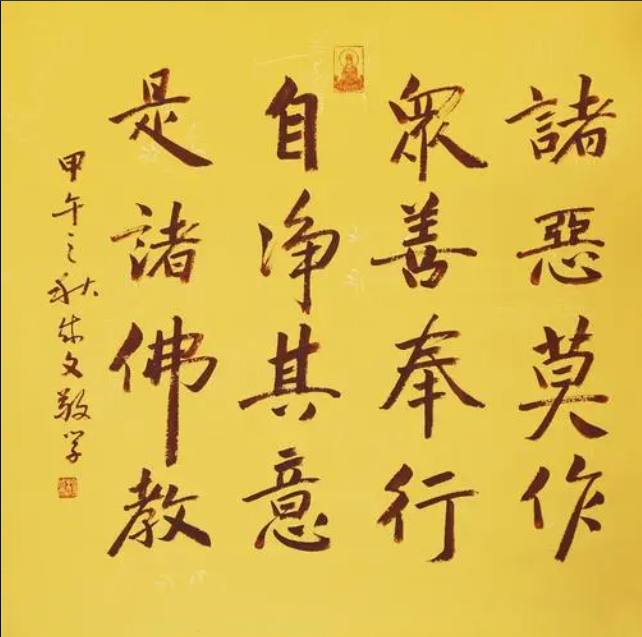 諸惡莫作
眾善奉行
自淨其意
是諸佛教
甲午之秋成文敬學